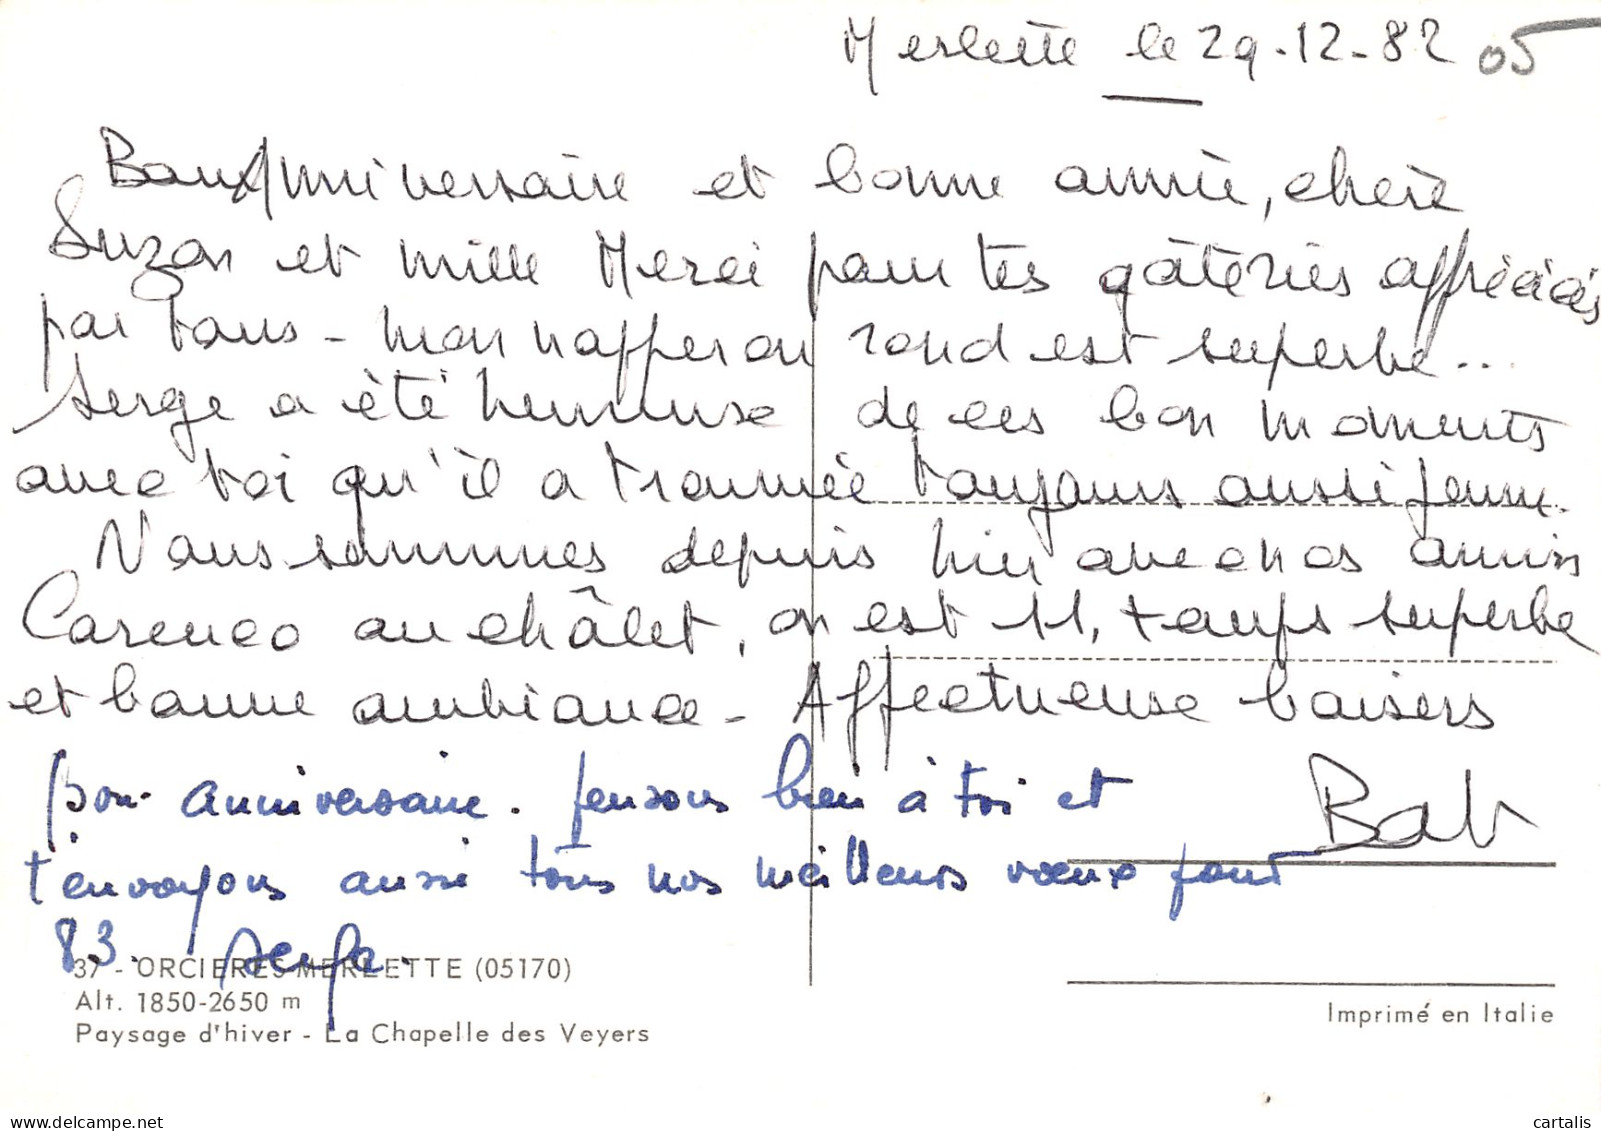 Merlette le 29-12-82 05
Bon Anniversaire et bonne année, chère
Suzon et mille Merci pour tes gâteries appréciées
par tous - mon napperon rond est superbe...
Serge a été heureux de ces bon moments
avec toi qu'il a trouvée toujours aussi jeune.
Nous sommes depuis hier avec nos amis
Carenco au châlet, on est 11, temps superbe
et bonne ambiance - Affectueuse baisers
Bab
bon anniversaire. pensons bien à toi et
t'envoyons aussi tous nos meilleurs voeux pour
83. Serge.
37 - ORCIERES-MERLETTE (05170)
Alt. 1850-2650 m
Paysage d'hiver - La Chapelle des Veyers
Imprimé en Italie
cartalis